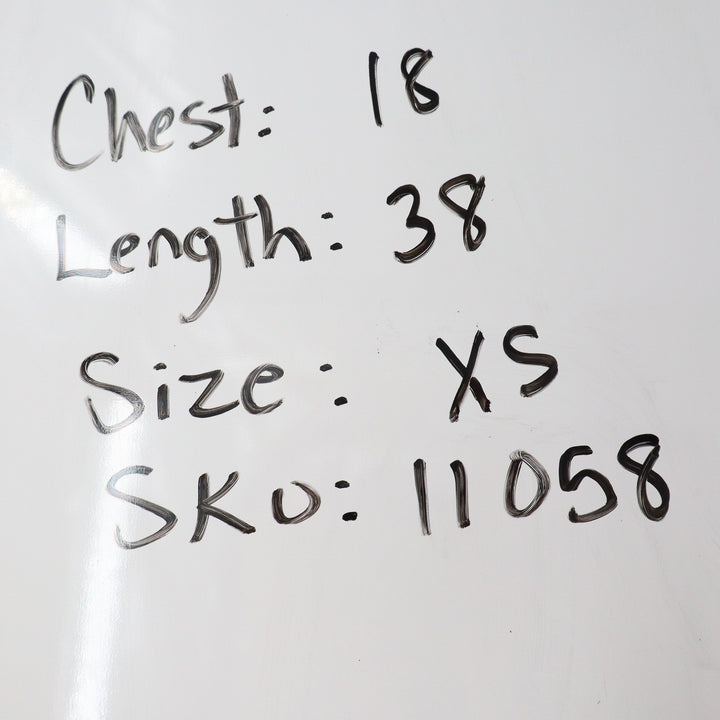 Chest: 18
Length: 38
Size: XS
SKU: 11058